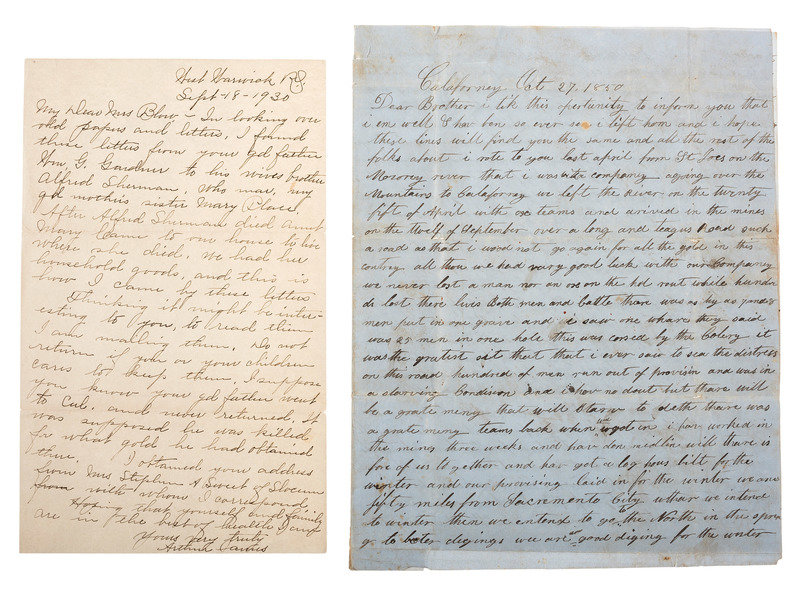 West Warwick R.I.
Sept-18-1930
My Dear Mrs Blow- In looking over
old papers and letters, I found
these letters from your gd father
Wm G. Gardner to his wives brother
Alfred Sherman. Who mar, my
gd mother's sister Mary Place.
After Alfred Sherman died Aunt
Mary came to our house to live
where she died. We had her
household goods, and this is
how I came by these letters
Thinking it might be inter-
esting to you, to read them
I am mailing them. Do not
return if you or your children
cares to keep them. I suppose
you know your gd father went
to Cal, and never returned, It
was supposed he was killed
for what gold he had obtained
there. I obtained your address
from Mrs Stephen A Sweet of Slocum
from with whom I correspond
Hoping that yourself and family
are in the best of health I am
Yours very truly
Arthur
Calaforney Oct 27. 1850
Dear Brother i tek this opertunity to inform you that
i em well & hav ben so ever sen i left hom and i hope
these lines will find you the same and all the rest of the
folks about i rote to you last april from St Loes on the
river that i was with company agoing over the
Mountains to Calaforney we left the River on the twenty
fift of April with ox teams and arived in the mines
on the twelf of September over a long and road such
a road as that i wood not go again for all the gold in this
contry all thou we had vary good luck with our Company
we never lost a man nor an ox on the hol rout while hundr
ds lost there lives Both men and Cattle thare was as hy as
men put in one grave and i saw one whare they said
was 25 men in one hole this was corsed by the Colery it
was the gratest sit that i ever saw to sea the distress
on this road hundred of men run out of provisin and was in
a starving Condison and i hav no dout but thare will
be a grate meny that will Starve to deth thare was
a grate meny teams back when we got in i hav worked in
the mines three weeks and hav don midlin will thare is
five of us together and hav got a log hous bilt for the
winter and our provising laid in for the winter we are
fifty miles from Sacremento City whar we intend
to winter then we entend to go to the North in the spring
g to beter digings we are good diging for the winter